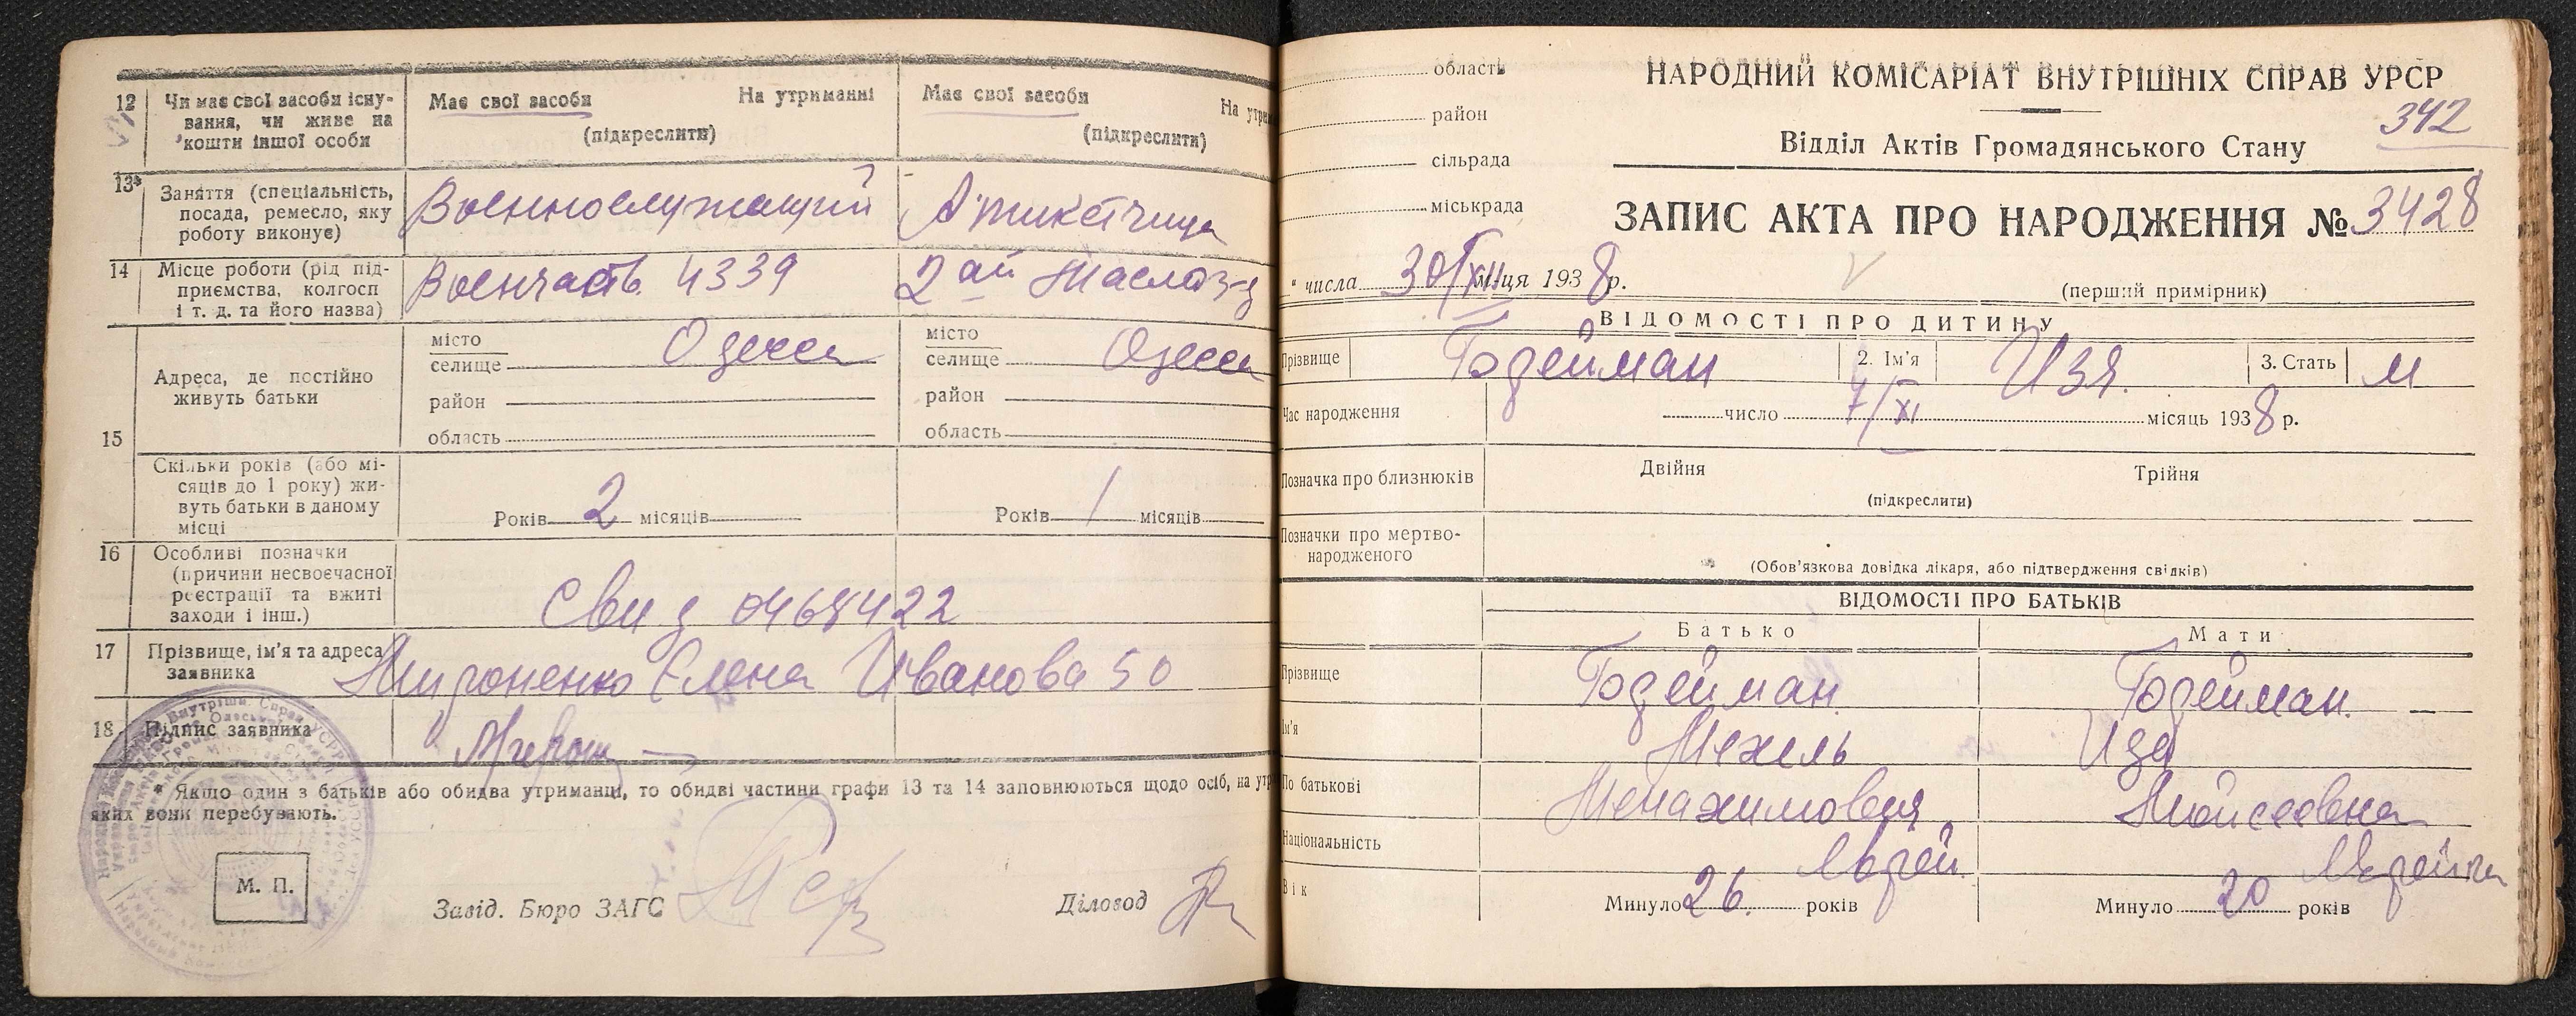 12 Чи має свої засоби існу-
вання, чи живе на
кошти іншої особи
Має свої засоби На утриманні
(підкреслити)
Має свої засоби На утрим
(підкреслити)
13* Заняття (спеціальність,
посада, ремесло, яку
роботу виконує)
Военнослужащий
Этикетчица
14 Місце роботи (рід під-
приємства, колгосп
і т. д. та його назва)
Военчасть 4339
2ай Маслоз-д
15 Адреса, де постійно
живуть батьки
місто
селище Одесса
район
область
місто
селище Одесса
район
область
Скільки років (або мі-
сяців до 1 року) жи-
вуть батьки в даному
місці
Років 2 місяців
Років 1 місяців
16 Особливі позначки
(причини несвоєчасної
реєстрації та вжиті
заходи і інш.)
Свид 0468422
17 Прізвище, ім'я та адреса
заявника
Мироненко Елена Иванова 50
18 Підпис заявника
* Якщо один з батьків або обидва утриманці, то обидві частини графи 13 та 14 заповнюються щодо осіб, на утр
яких вони перебувають.
М. П.
Завід. Бюро ЗАГС
Діловод
область
район
сільрада
міськрада
НАРОДНИЙ КОМІСАРІАТ ВНУТРІШНІХ СПРАВ УРСР
342
Відділ Актів Громадянського Стану
ЗАПИС АКТА ПРО НАРОДЖЕННЯ № 3428
" числа 30/XII місяця 1938 р.
(перший примірник)
ВІДОМОСТІ ПРО ДИТИНУ
Прізвище Годейман 2. Ім'я Изя. 3. Стать м
Час народження число 7/XI місяць 1938 р.
Позначка про близнюків Двійня Трійня
(підкреслити)
Позначки про мертво-
народженого
(Обов'язкова довідка лікаря, або підтвердження свідків)
ВІДОМОСТІ ПРО БАТЬКІВ
Батько Мати
Прізвище Годейман. Годейман.
Ім'я Мехель Ида
По батькові Менахимович Моисеевна
Національність Еврей. Еврейка
Вік Минуло 26. років Минуло 20 років